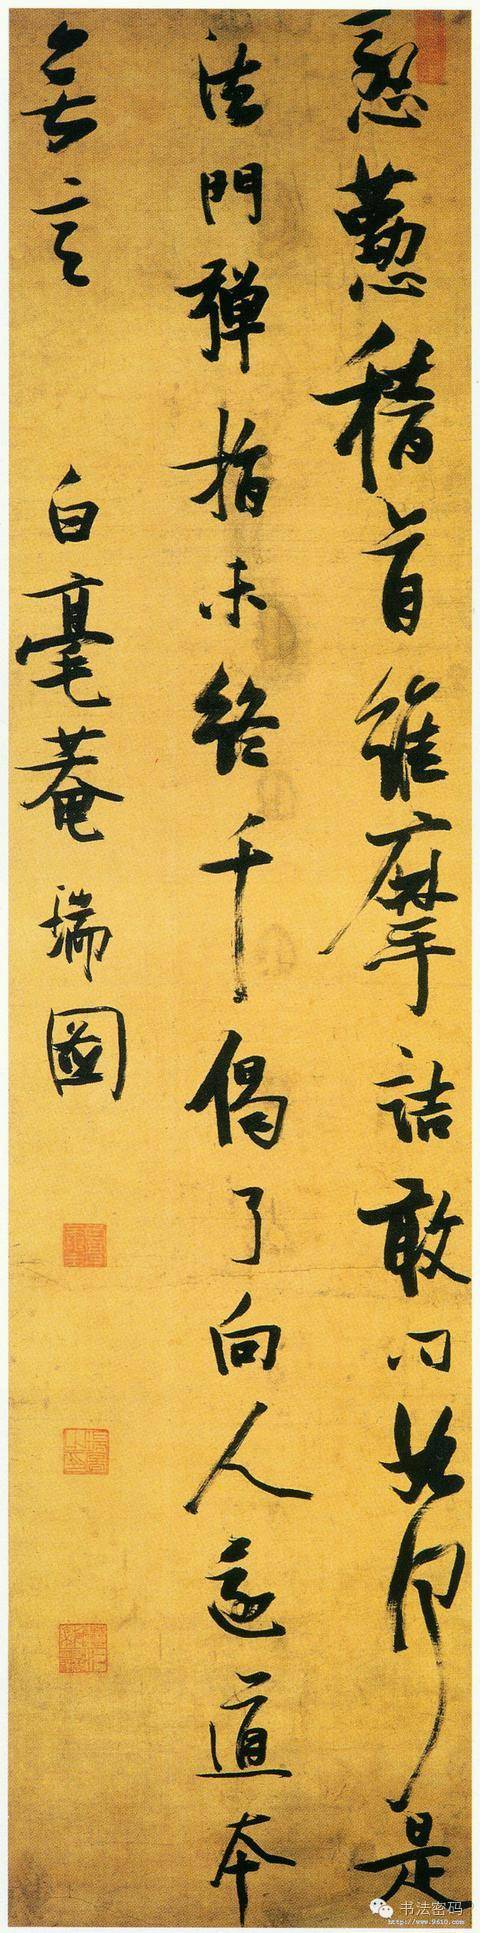 慇懃稽首維摩詰敢問如何是
法門彈指未終千偈了向人還道本
無言 白毫菴瑞圖
书法密码
http://www.9610.com